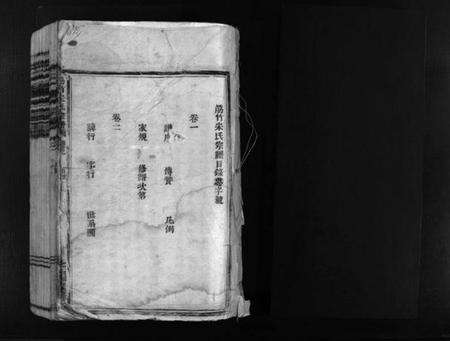 筋竹朱氏宗譜目錄
卷一
譜序 傳贊 凡例
家規 修譜次第
卷二
諱行 字行 世系圖